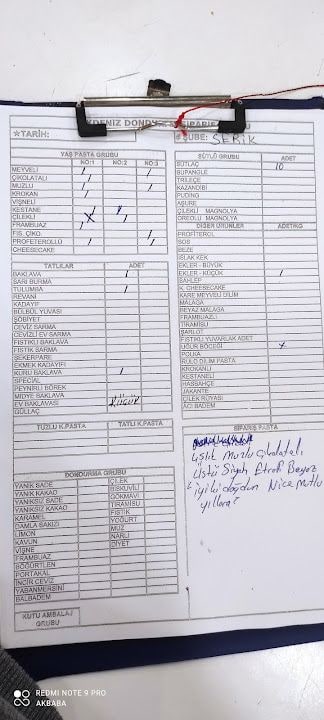 AKDENİZ DONDURMA SİPARİŞ
★TARİH:
★ŞUBE: SERİK
YAŞ PASTA GRUBU
NO:1 NO:2 NO:3
MEYVELİ / /
ÇİKOLATALI /
MUZLU / /
KROKAN /
VİŞNELİ
KESTANE / /
ÇİLEKLİ X /
FRAMBUAZ /
FIS. ÇİKO. /
PROFETEROLLÜ / /
CHEESECAKE
TATLILAR ADET
BAKLAVA /
SARI BURMA
TULUMBA /
REVANİ
KADAYIF
BÜLBÜL YUVASI
ŞÖBİYET
CEVİZ SARMA
CEVİZLİ EV SARMA
FISTIKLI BAKLAVA
FISTIK SARMA
ŞEKERPARE
EKMEK KADAYIFI
KURU BAKLAVA /
SPECIAL
PEYNİRLİ BÖREK
MİDYE BAKLAVA
EV BAKLAVASI küçük
GÜLLAÇ
TUZLU K.PASTA TATLI K.PASTA
DONDURMA GRUBU
YANIK SADE ÇİLEK
YANIK KAKAO BİSKÜVİLİ
YANIKSIZ SADE GÖKMAVİ
YANIKSIZ KAKAO TİRAMİSU
KARAMEL FISTIK
DAMLA SAKIZI YOĞURT
LİMON MUZ
KAVUN NARLI
VİŞNE DİYET
FRAMBUAZ
BÖĞÜRTLEN
PORTAKAL
İNCİR CEVİZ
YABANMERSİNİ
BALBADEM
KUTU AMBALAJ
GRUBU
SÜTLÜ GRUBU ADET
SÜTLAÇ 10
SUPANGLE
TRİLEÇE
KAZANDİBİ
PUDİNG
AŞURE
ÇİLEKLİ MAGNOLYA
OREOLU MAGNOLYA
DİĞER ÜRÜNLER ADET/KG
PROFİTEROL
SOS
BEZE
ISLAK KEK
EKLER - BÜYÜK
EKLER - KÜÇÜK /
SAHLEP
K. CHEESECAKE
KARE MEYVELİ DİLİM
MALAGA
BEYAZ MALAGA
FRAMBUAZLI
TİRAMİSU
ŞARLOT
FISTIKLI YUVARLAK ADET
UĞUR BÖCEĞİ 4
POLKA
RULO DİLİM PASTA
KROKANLI
KESTANELİ
HASSAHÇE
JAKANTE
ÇİLEK RÜYASI
ACI BADEM
SİPARİŞ PASTA
Muzlu Çikolatalı
Üstü Siyah Etrafı Beyaz
iyiki doğdun Nice Mutlu
yıllara
REDMI NOTE 9 PRO
AKBABA